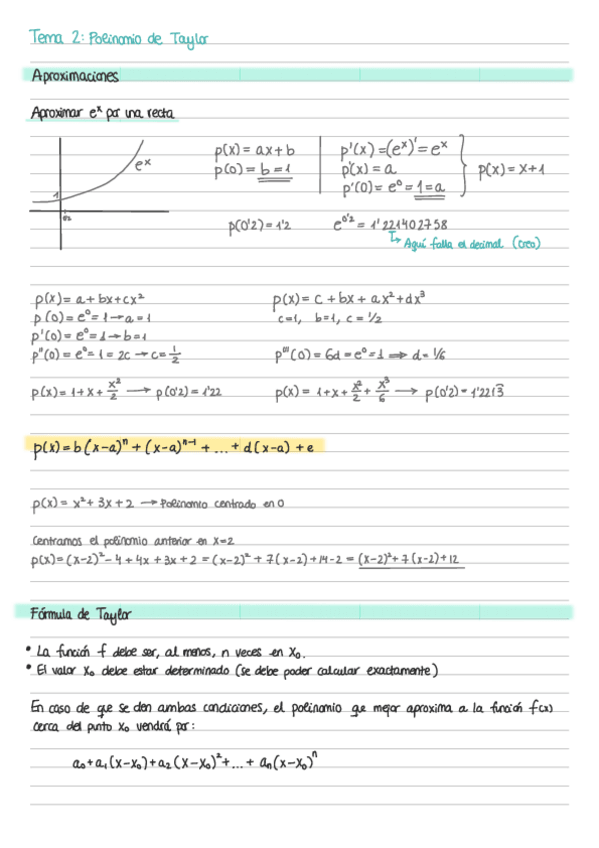 Tema 2: Polinomio de Taylor
Aproximaciones
Aproximar eˣ por una recta
p(x) = ax + b
p'(x) = (eˣ)' = eˣ
eˣ
p(0) = b = 1
p'(x) = a
p(x) = x + 1
p'(0) = e⁰ = 1 = a
1
0'2
p(0'2) = 1'2
e^0'2 = 1'221402758
↳ Aquí falla el decimal (creo)
p(x) = a + bx + cx²
p(x) = c + bx + ax² + dx³
p(0) = e⁰ = 1 → a = 1
c=1, b=1, c = 1/2
p'(0) = e⁰ = 1 → b = 1
p''(0) = e⁰ = 1 = 2c → c = 1/2
p'''(0) = 6d = e⁰ = 1 ⟹ d = 1/6
p(x) = 1 + x + x²/2 → p(0'2) = 1'22
p(x) = 1 + x + x²/2 + x³/6 → p(0'2) = 1'2213̂
p(x) = b(x-a)ⁿ + (x-a)ⁿ⁻¹ + ... + d(x-a) + e
p(x) = x² + 3x + 2 → Polinomio centrado en 0
Centramos el polinomio anterior en x=2
p(x) = (x-2)² - 4 + 4x + 3x + 2 = (x-2)² + 7(x-2) + 14 - 2 = (x-2)² + 7(x-2) + 12
Fórmula de Taylor
• La función f debe ser, al menos, n veces en x₀.
• El valor x₀ debe estar determinado (se debe poder calcular exactamente)
En caso de que se den ambas condiciones, el polinomio que mejor aproxima a la función f(x)
cerca del punto x₀ vendrá por:
a₀ + a₁(x-x₀) + a₂(x-x₀)² + ... + aₙ(x-x₀)ⁿ